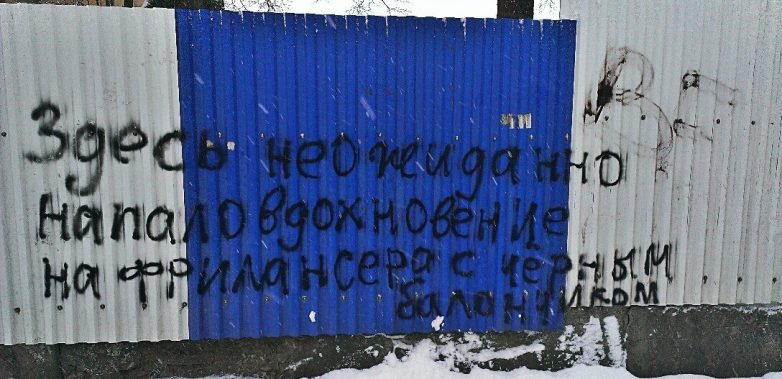 Здесь неожиданно
напало вдохновение
на фрилансера с чёрным
балончиком